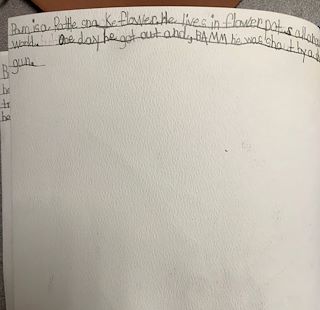 Bam is a Rattle snake flower. He lives in flower pots all around
world. One day he got out and, BAMM he was shot by a
gun.
B
be
tr
be